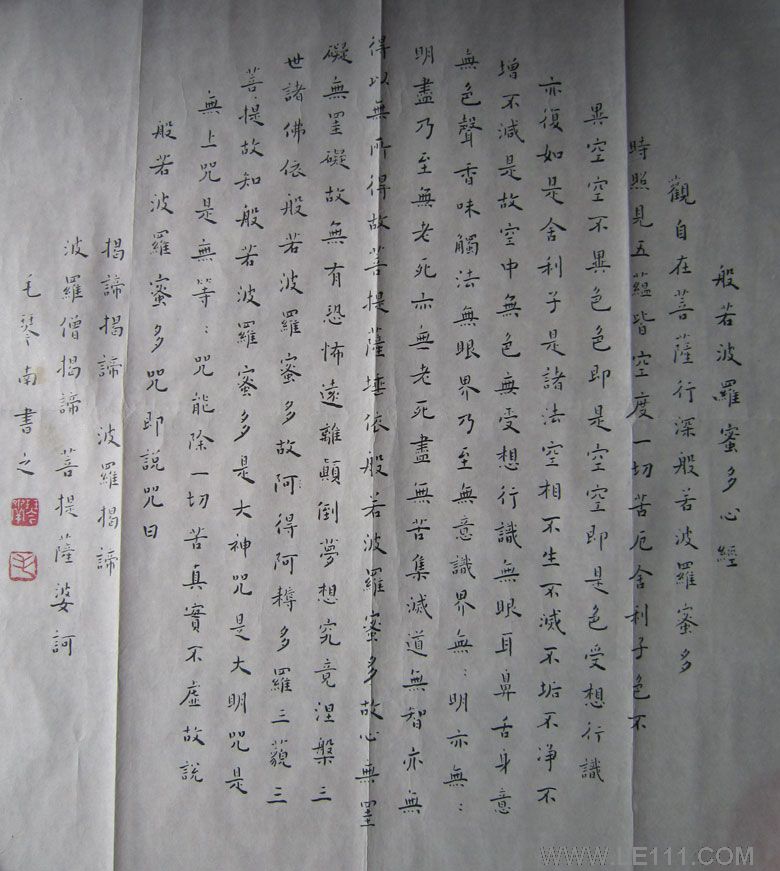 般若波羅蜜多心經
觀自在菩薩行深般若波羅蜜多
時照見五蘊皆空度一切苦厄舍利子色不
異空空不異色色即是空空即是色受想行識
亦復如是舍利子是諸法空相不生不滅不垢不净不
增不減是故空中無色無受想行識無眼耳鼻舌身意
無色聲香味觸法無眼界乃至無意識界無：明亦無：
明盡乃至無老死亦無老死盡無苦集滅道無智亦無
得以無所得故菩提薩埵依般若波羅蜜多故心無罣
礙無罣礙故無有恐怖遠離顛倒夢想究竟涅槃三
世諸佛依般若波羅蜜多故阿得阿耨多羅三藐三
菩提故知般若波羅蜜多是大神咒是大明咒是
無上咒是無等：咒能除一切苦真實不虛故說
般若波羅蜜多咒即說咒曰
揭諦揭諦 波羅揭諦
波羅僧揭諦 菩提薩婆訶
毛琴南書之
WWW.LE111.COM